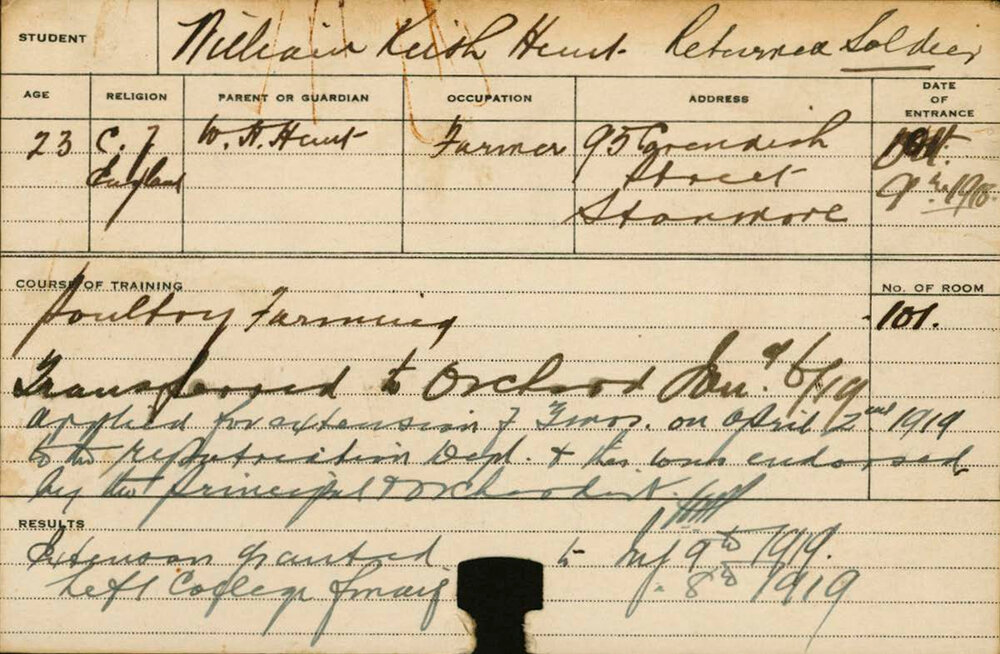 STUDENT William Keith Hunt Returned Soldier
AGE RELIGION PARENT OR GUARDIAN OCCUPATION ADDRESS DATE OF ENTRANCE
23 C. of W. H. Hunt Farmer 95 Cavendish Oct.
England Street 9th 1918.
Stanmore
COURSE OF TRAINING No. OF ROOM
Poultry Farming 101.
Transferred to Orchard Jan. 6/19
Applied for extension of 3 mos. on April 2nd 1919
to the Repatriation Dept. & this was endorsed
by the Principal & Orchardist.
RESULTS
Extension granted to July 9th 1919.
Left College finally 8th 1919